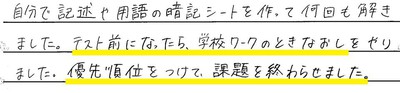 自分で記述や用語の暗記シートを作って何回も解き
ました。テスト前になったら、学校ワークのときなおしをやり
ました。優先順位をつけて、課題を終わらせました。